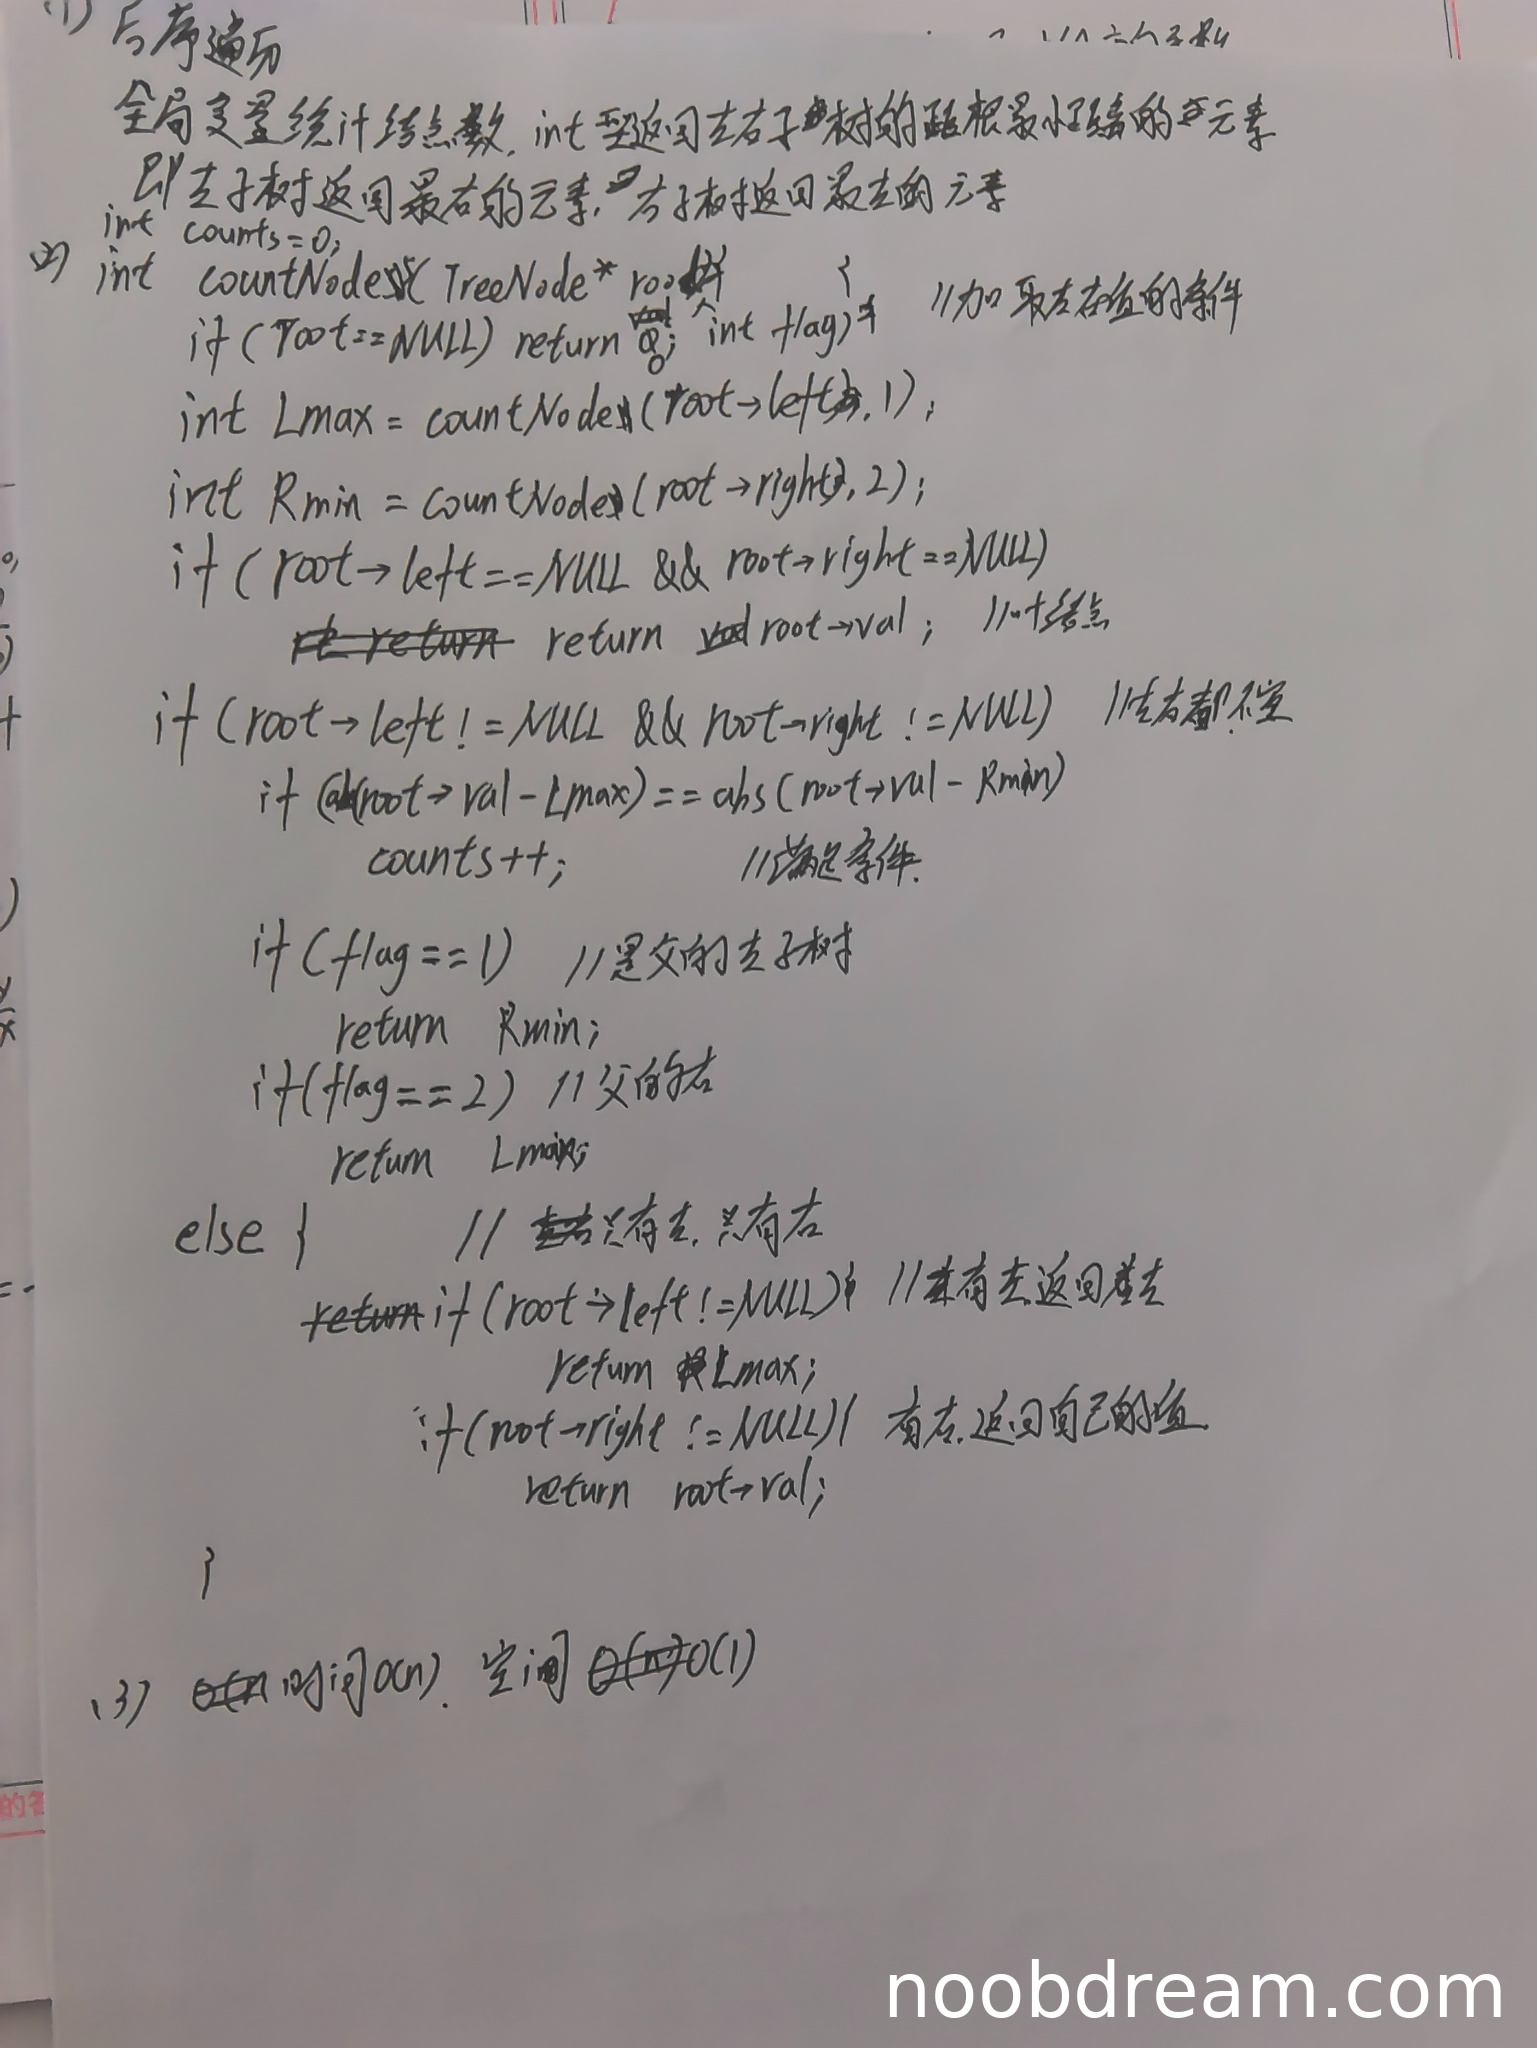 (1) 后序遍历
全局变量统计结点数, int型返回左右子树的距根最小距离的元素
即左子树返回最右的元素, 右子树返回最左的元素
int counts=0;
(2) int countNodes( TreeNode* root {
if(root==NULL) return 0; ^int flag){ //加取左右值的条件
int Lmax = countNodes(root→left,1);
int Rmin = countNodes(root→right,2);
if(root→left==NULL && root→right==NULL)
return root→val; //叶结点
if(root→left!=NULL && root→right!=NULL) //左右都不空
if(abs(root→val-Lmax)==abs(root→val-Rmin)
counts++; //满足条件.
if(flag==1) //是父的左子树
return Rmin;
if(flag==2) //父的右
return Lmax;
else { // 只有左, 只有右
if(root→left!=NULL){ //有左,返回左
return Lmax;
if(root→right!=NULL){ 有右,返回自己的值
return root→val;
}
(3) 时间O(n). 空间O(1)
的答
noobdream.com